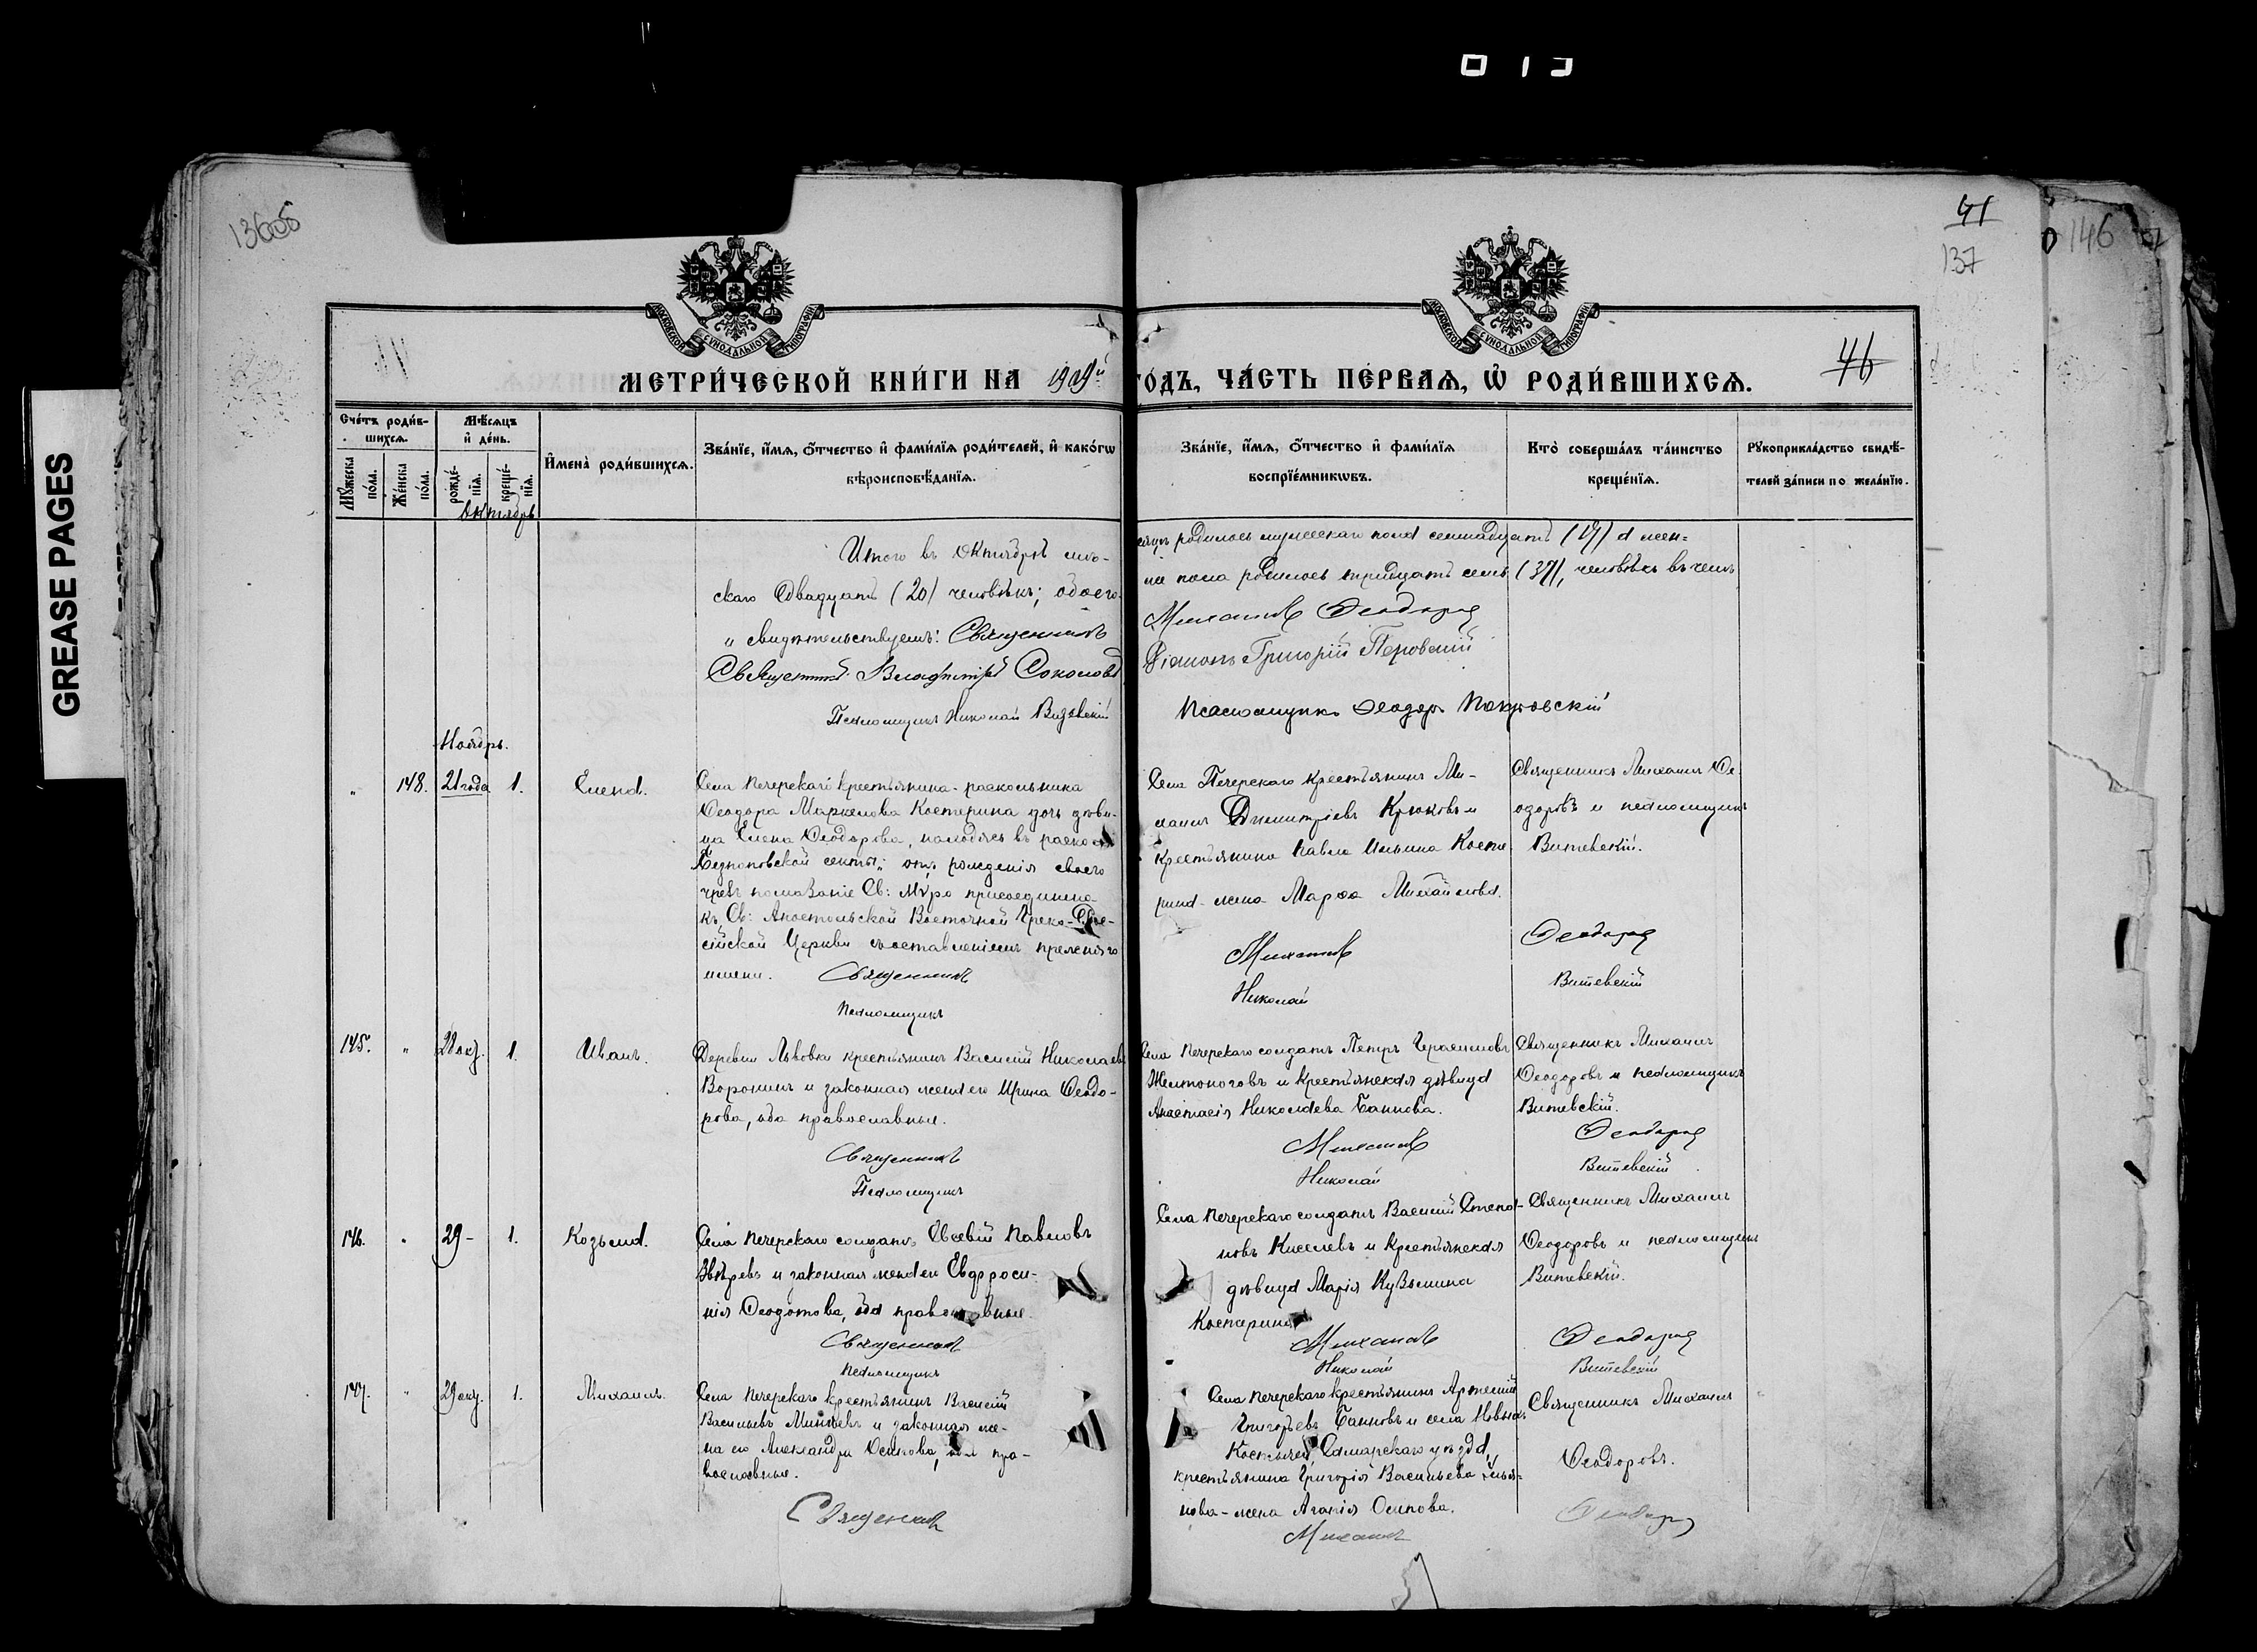 13606
41
137
146
GREASE PAGES
МОСКОВСКОЙ СУНОДАЛЬНОЙ ТИПОГРАФІИ
МОСКОВСКОЙ СУНОДАЛЬНОЙ ТИПОГРАФІИ
46
МЕТРИ́ЧЕСКОЙ КНИ́ГИ НА 1909й ГО́ДЪ, ЧА́СТЬ ПЕ́РВАѦ, Ѡ҆ РОДИ́ВШИХСѦ.
Сче́тъ роди́в-
шихсѧ.
Мꙋ́жеска по́ла.
Же́нска по́ла.
Мѣ́сѧцъ
и҆ де́нь.
рожде́-нїѧ.
креще́-нїѧ.
И҆мена̀ роди́вшихсѧ.
Зва́нїе, и҆́мѧ, ѻ҆́тчество и҆ фами́лїѧ роди́телей, и҆ како́гѡ
вѣроисповѣ́данїѧ.
Зва́нїе, и҆́мѧ, ѻ҆́тчество и҆ фами́лїѧ
воспрїе́мникѡвъ.
Кто̀ соверша́лъ та́инство
креще́нїѧ.
Рꙋкоприкла́дство свидѣ́-
телей за́писи по жела́нїю.
Октябрь
Итого въ Октябрѣ мѣ-
сяцѣ родилось мужескаго пола семнадцать (17) а жен-
скаго двадцать (20) человѣкъ; обоего
пола родилось тридцать семь (37), человѣкъ въ чемъ
и свидѣтельствуемъ: Священникъ Михаилъ Феодоровъ
Священникъ Владимiръ Соколовъ
Дiаконъ Григорiй Перовскiй
Псаломщикъ Николай Витевскiй
Псаломщикъ Феодоръ Покровскiй
Ноябрь.
" 148. 21 года 1. Елена.
Села Печерскаго крестьянина-раскольника
Феодора Маркелова Костерина дочь дѣви-
ца Елена Феодорова, находясь въ расколѣ
Безпоповской секты, отъ рожденiя своего
чрезъ помазанiе Св: Мѵро присоединена
къ Св: Апостольской Восточной Греко-Рос-
сiйской Церкви съ оставленiемъ прежняго
имени. Священникъ
Псаломщикъ
Села Печерскаго крестьянинъ Ми-
хаилъ Димитрiевъ Крюковъ и
крестьянина Павла Ильина Косте-
рина жена Марѳа Михайлова.
Михаилъ
Николай
Священникъ Михаилъ Фе-
одоровъ и псаломщикъ
Витевскiй.
Феодоровъ
Витевскiй
145. " 28 окт. 1. Иванъ.
Деревни Львовки крестьянинъ Василiй Николаевъ
Воронинъ и законная жена его Ирина Феодо-
рова, оба православные.
Священникъ
Псаломщикъ
Села Печерскаго солдатъ Петръ Герасимовъ
Желтоноговъ и крестьянская дѣвица
Анастасiя Николаева Баннова.
Михаилъ
Николай
Священникъ Михаилъ
Феодоровъ и псаломщикъ
Витевскiй.
Феодоровъ
Витевскiй
146. " 29 - 1. Козьма.
Села Печерскаго солдатъ Евсевiй Павловъ
Звѣревъ и законная жена его Евфроси-
нiя Феодотова, оба православные.
Священникъ
Псаломщикъ
Села Печерскаго солдатъ Василiй Степа-
новъ Киселевъ и крестьянская
дѣвица Марiя Кузьмина
Костерина
Михаилъ
Николай
Священникъ Михаилъ
Феодоровъ и псаломщикъ
Витевскiй.
Феодоровъ
Витевскiй
147. " 29 окт. 1. Михаилъ.
Села Печерскаго крестьянинъ Василiй
Васильевъ Минѣевъ и законная же-
на его Александра Осипова, оба пра-
вославные.
Священникъ
Села Печерскаго крестьянинъ Артемiй
Григорьевъ Банновъ и села Новыхъ
Костычей, Самарскаго уѣзда,
крестьянина Григорiя Васильева
жена Агапiя Осипова.
Михаилъ
Священникъ Михаилъ
Феодоровъ.
Феодоровъ